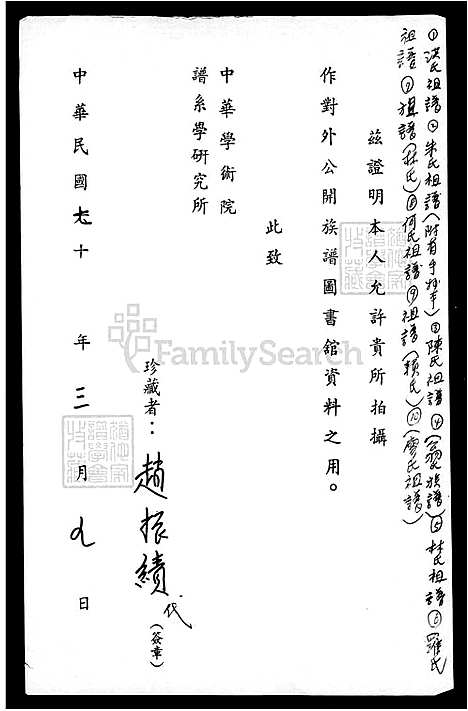 ①洪氏祖譜②朱氏祖譜(附有手抄本)③陳氏祖譜④(翁)族譜⑤林氏祖譜⑥羅氏
祖譜⑦祖譜(林氏)⑧何氏祖譜⑨祖譜(賴氏)⑩(廖氏祖譜)
茲證明本人允許貴所拍攝
作對外公開族譜圖書館資料之用。
此致
中華學術院
譜系學研究所
珍藏者：趙振績代(簽章)
中華民國七十年三月九日
FamilySearch